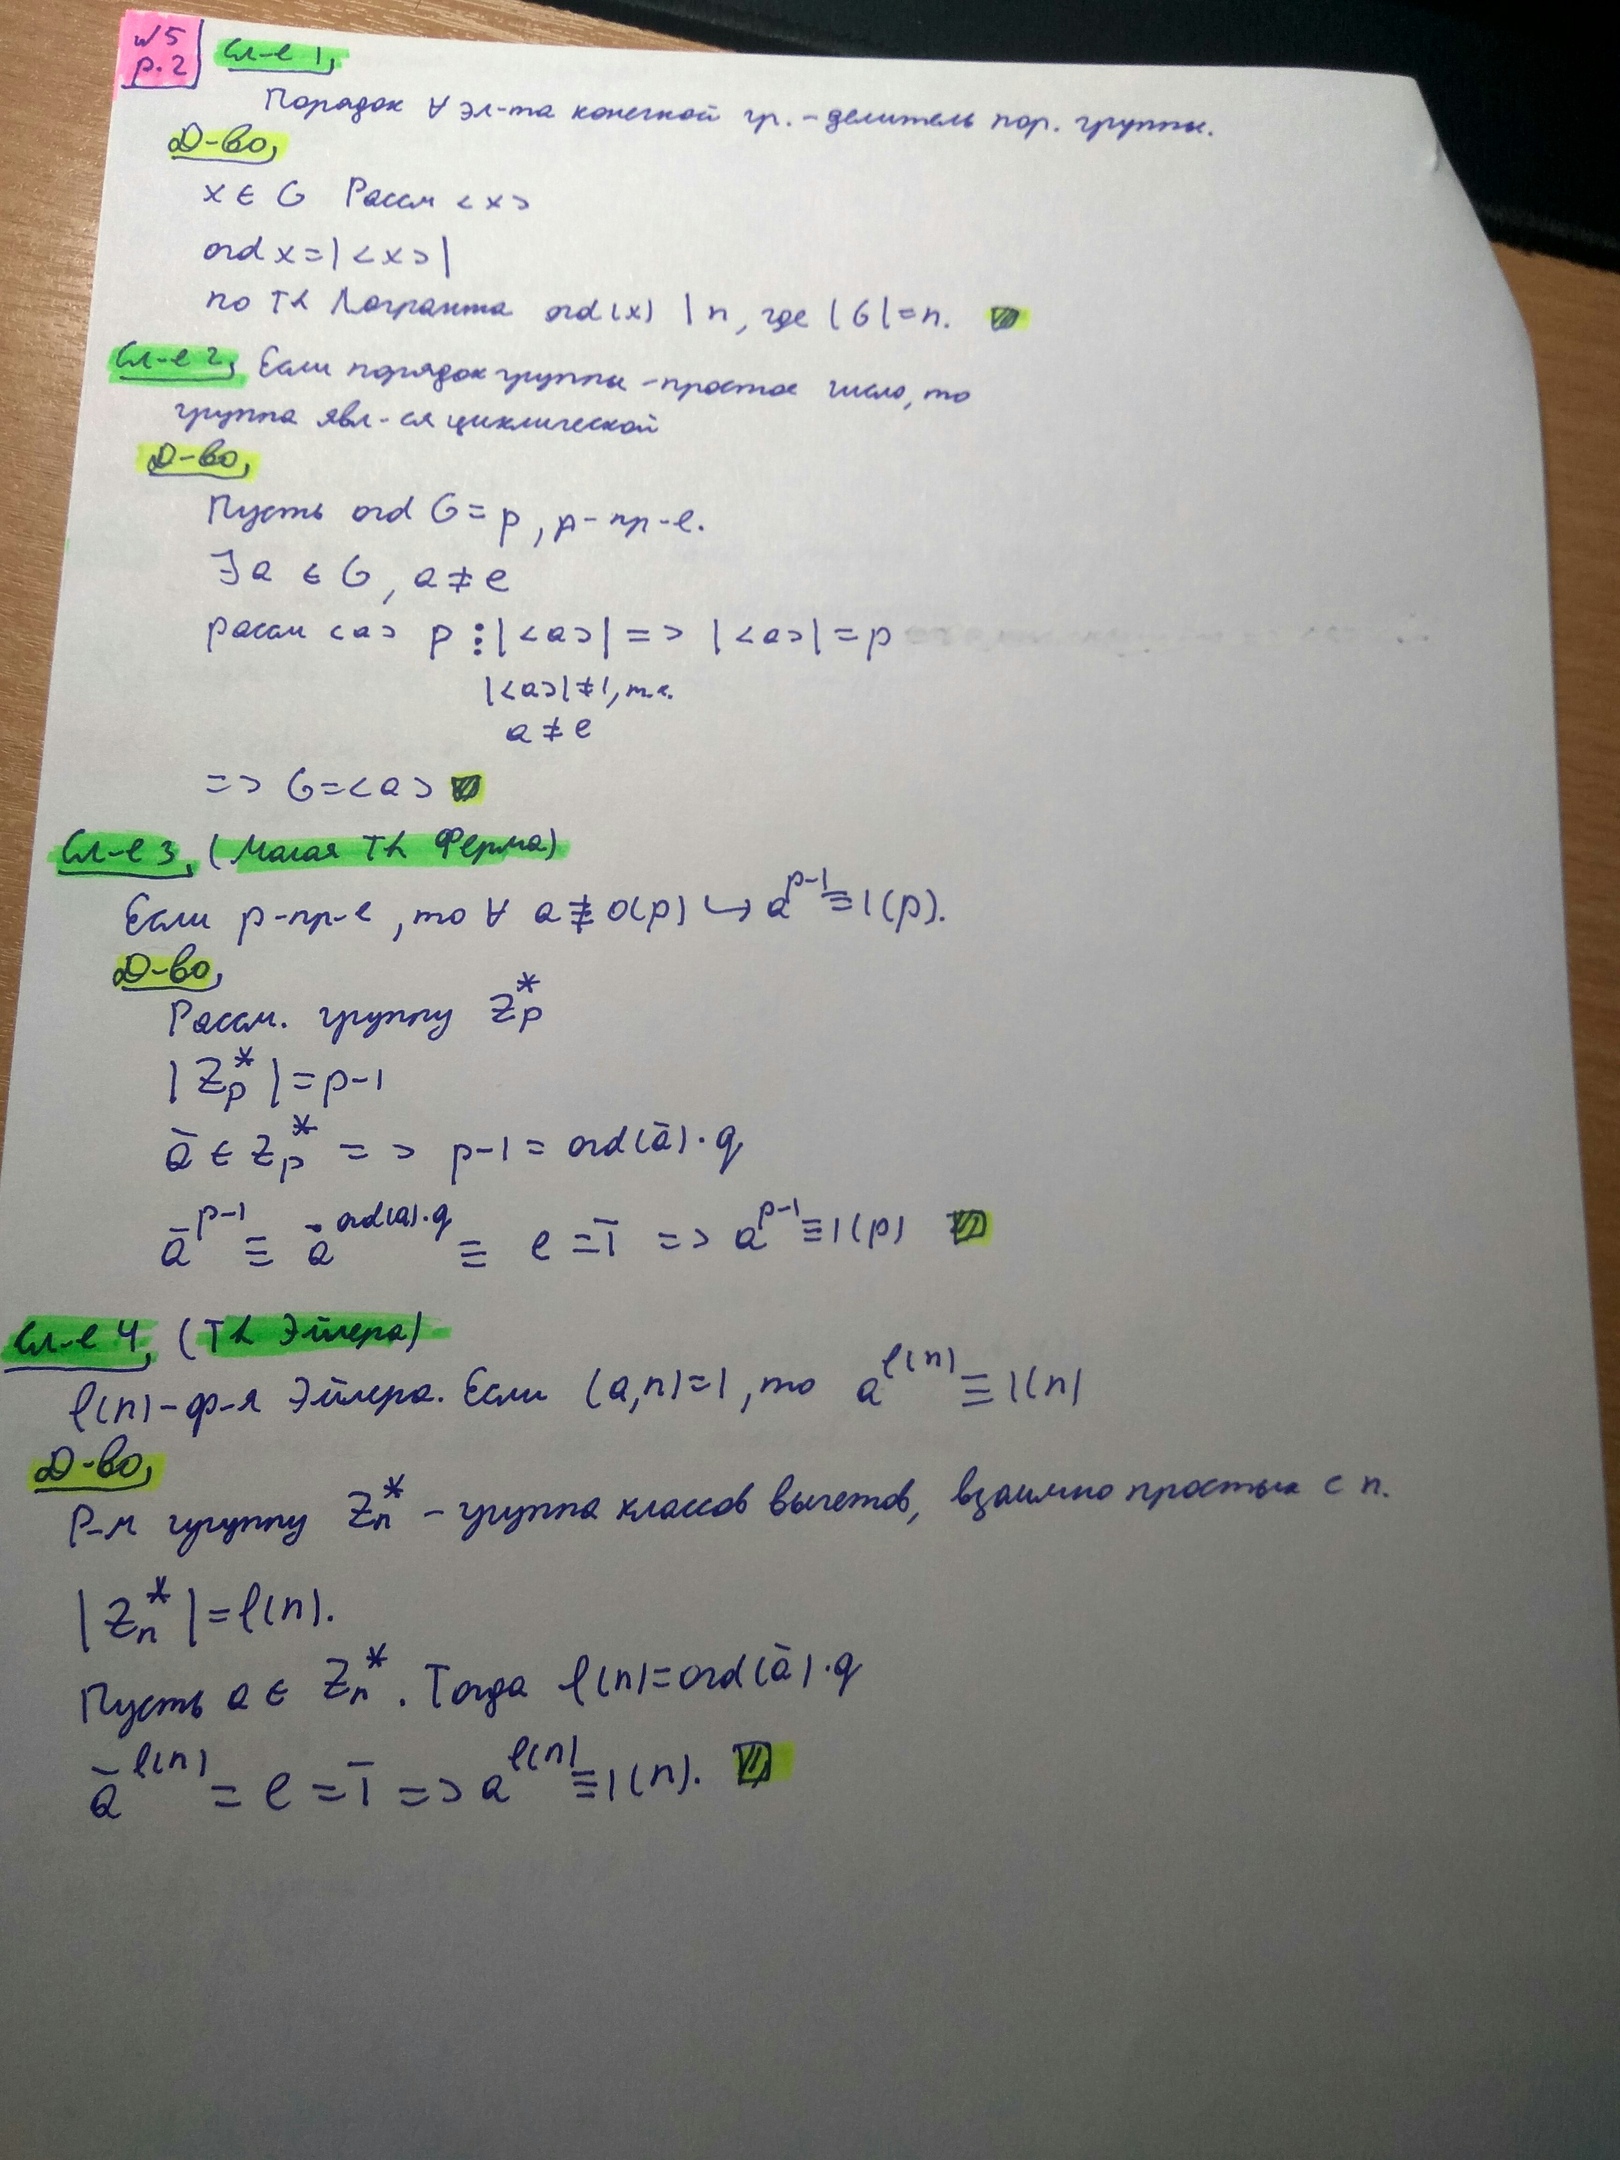 w5
p.2
Сл-е 1,
Порядок ∀ эл-та конечной гр. - делитель пор. группы.
Д-во,
x ∈ G Рассм <x>
ord x = |<x>|
по Th Лагранжа ord(x) | n, где |G| = n.
Сл-е 2, Если порядок группы - простое число, то
группа явл-ся циклической
Д-во,
Пусть ord G = p, p - пр-е.
∃ a ∈ G, a ≠ e
рассм <a> p ⋮ |<a>| => |<a>| = p
|<a>| ≠ 1, т.к.
a ≠ e
=> G = <a>
Сл-е 3, (Малая Th Ферма)
Если p - пр-е, то ∀ a ≢ 0(p) ↪ a^{p-1} ≡ 1(p).
Д-во,
Рассм. группу Z_p^*
|Z_p^*| = p-1
ā ∈ Z_p^* => p-1 = ord(ā)·q
ā^{p-1} ≡ ā^{ord(a)·q} ≡ e = 1̄ => a^{p-1} ≡ 1(p)
Сл-е 4, (Th Эйлера)
φ(n) - ф-я Эйлера. Если (a,n)=1, то a^{φ(n)} ≡ 1(n)
Д-во,
Р-м группу Z_n^* - группа классов вычетов, взаимно простых с n.
|Z_n^*| = φ(n).
Пусть a ∈ Z_n^*. Тогда φ(n) = ord(ā)·q
ā^{φ(n)} = e = 1̄ => a^{φ(n)} ≡ 1(n).